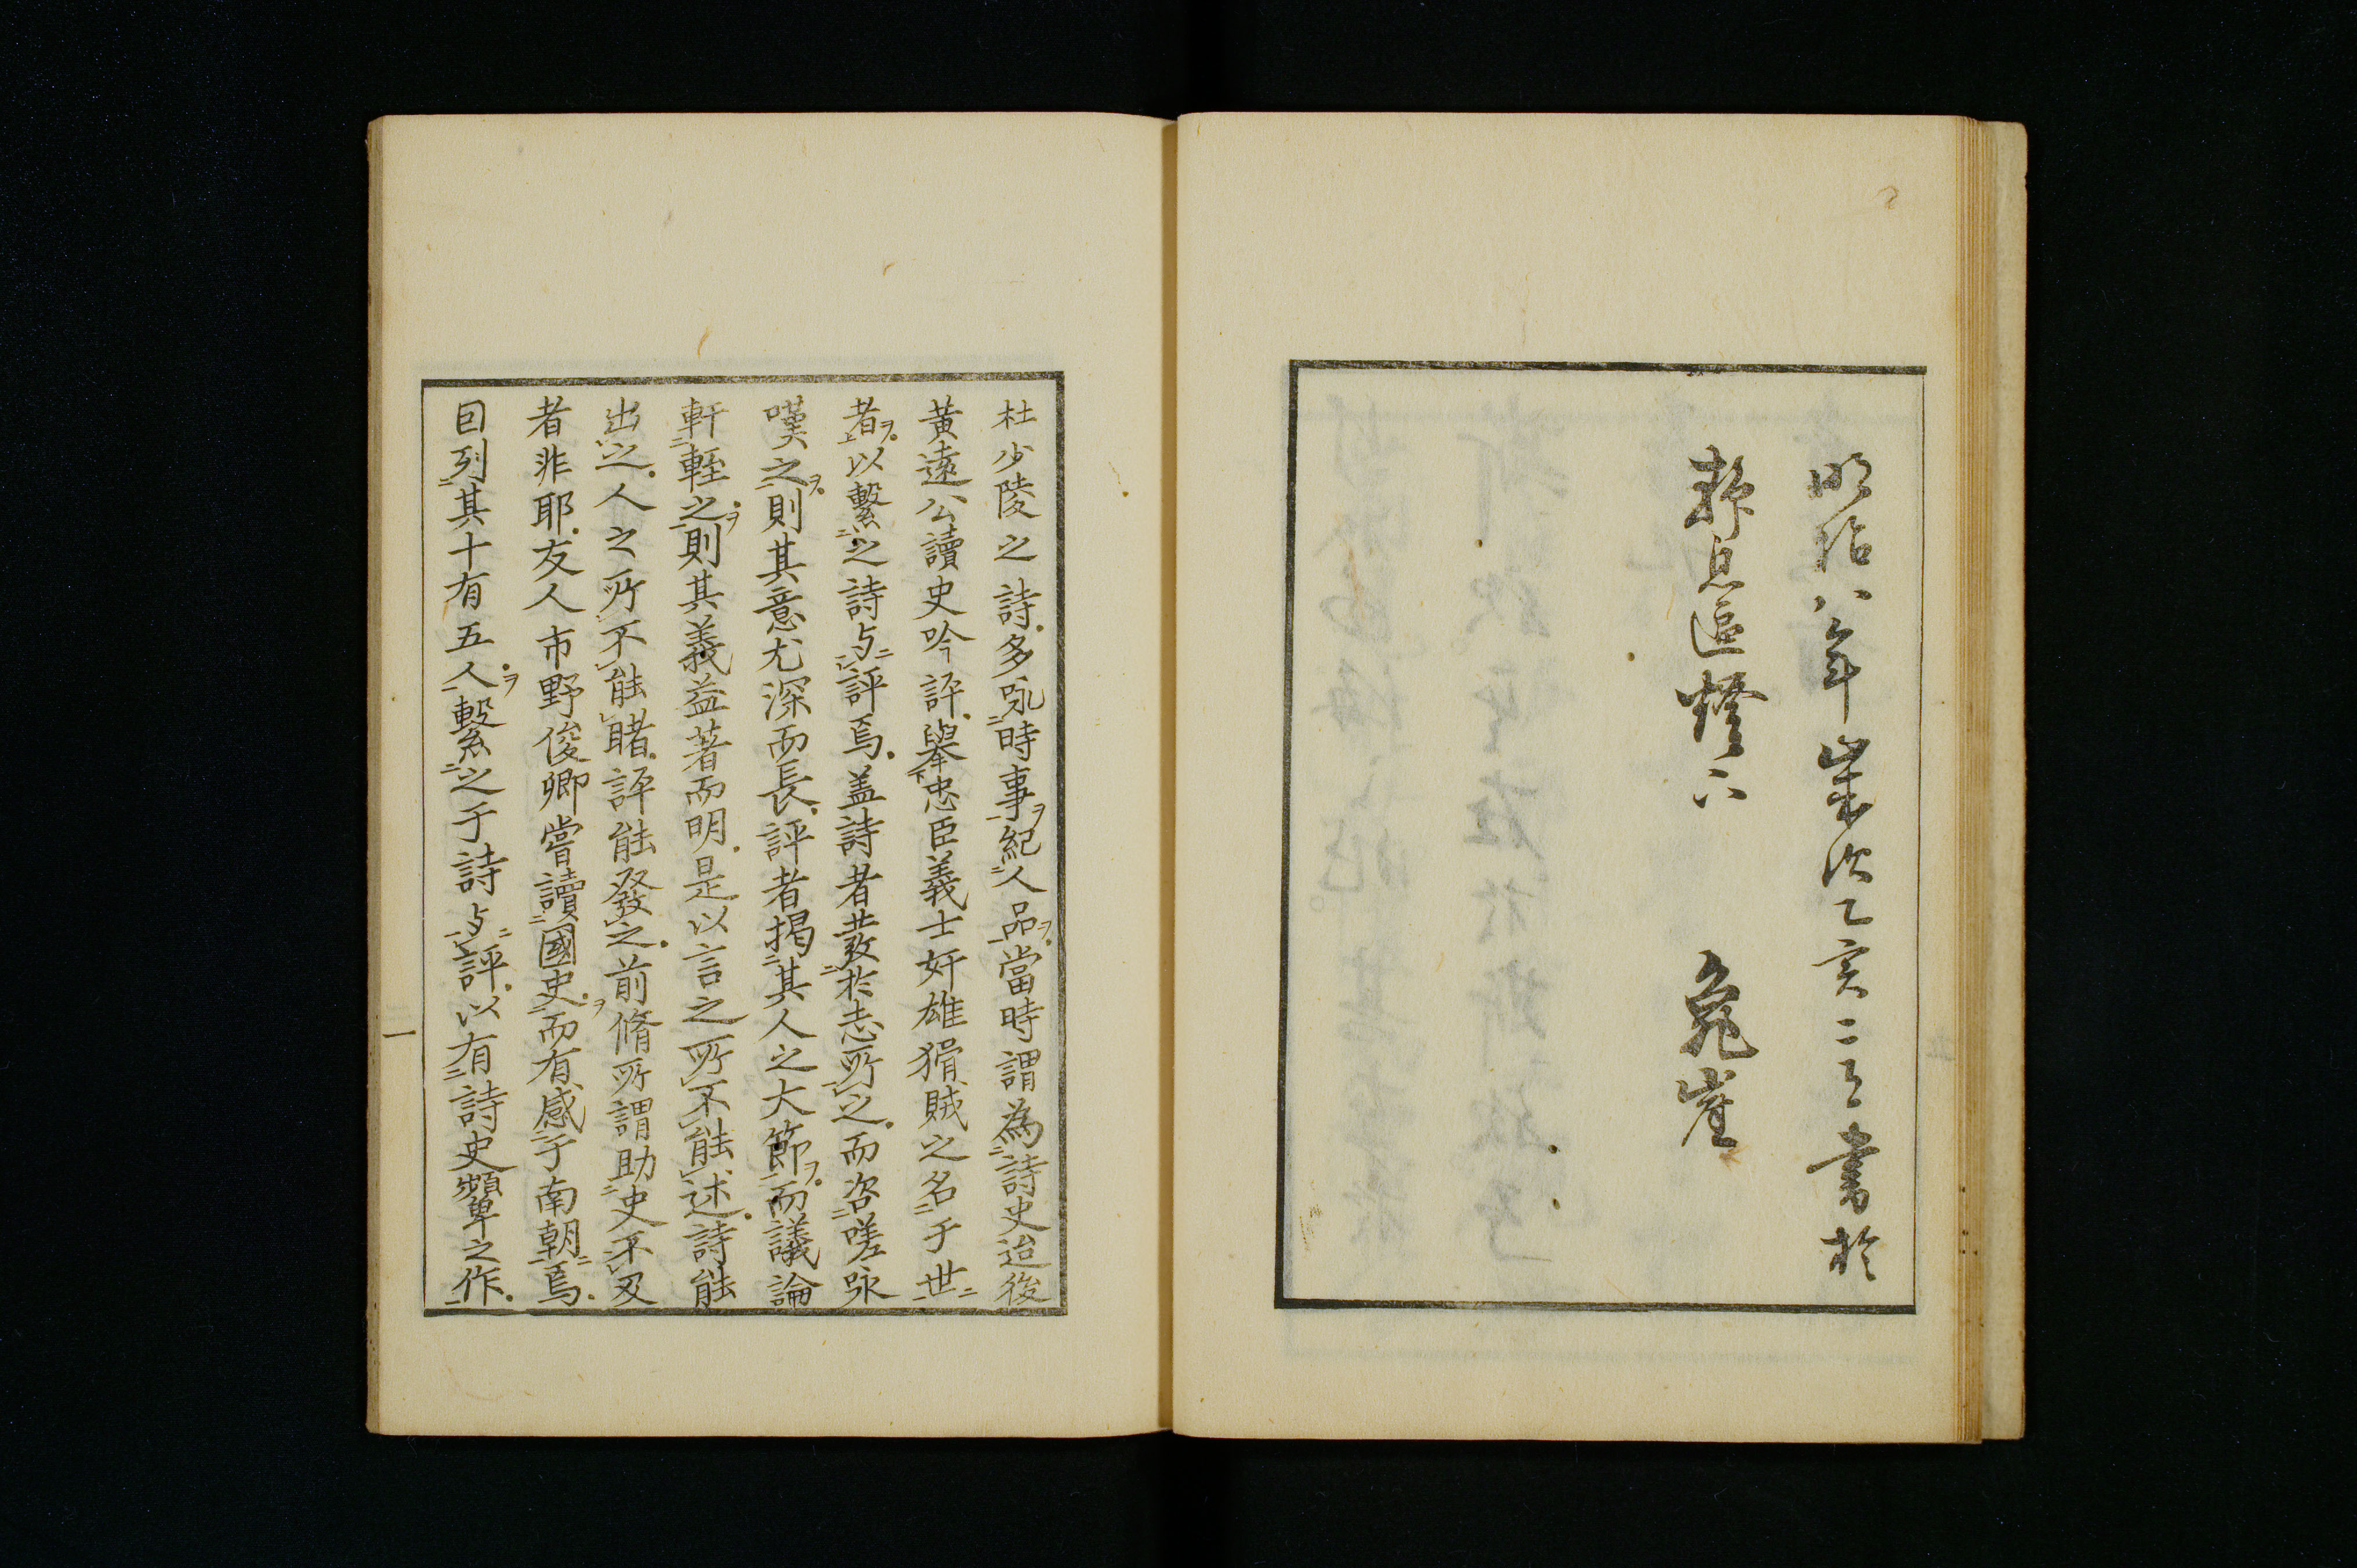 明治八年歳次乙亥二月書於
息區燈下 兔崖
杜少陵之詩多咏時事紀人品當時謂為詩史迨後
黄遠公讀史吟評擧忠臣義士奸雄猾賊之名于世
者以繫之詩与評焉盖詩者發於志所之而咨嗟咏
嘆之則其意尤深而長評者揭其人之大節而議論
軒輊之則其義益著而明是以言之所不能述詩能
出之人之所不能睹評能發之前脩所謂助史不及
者非耶友人市野俊卿嘗讀國史而有感于南朝焉
囙列其十有五人繫之于詩与評以有詩史顰之作
一